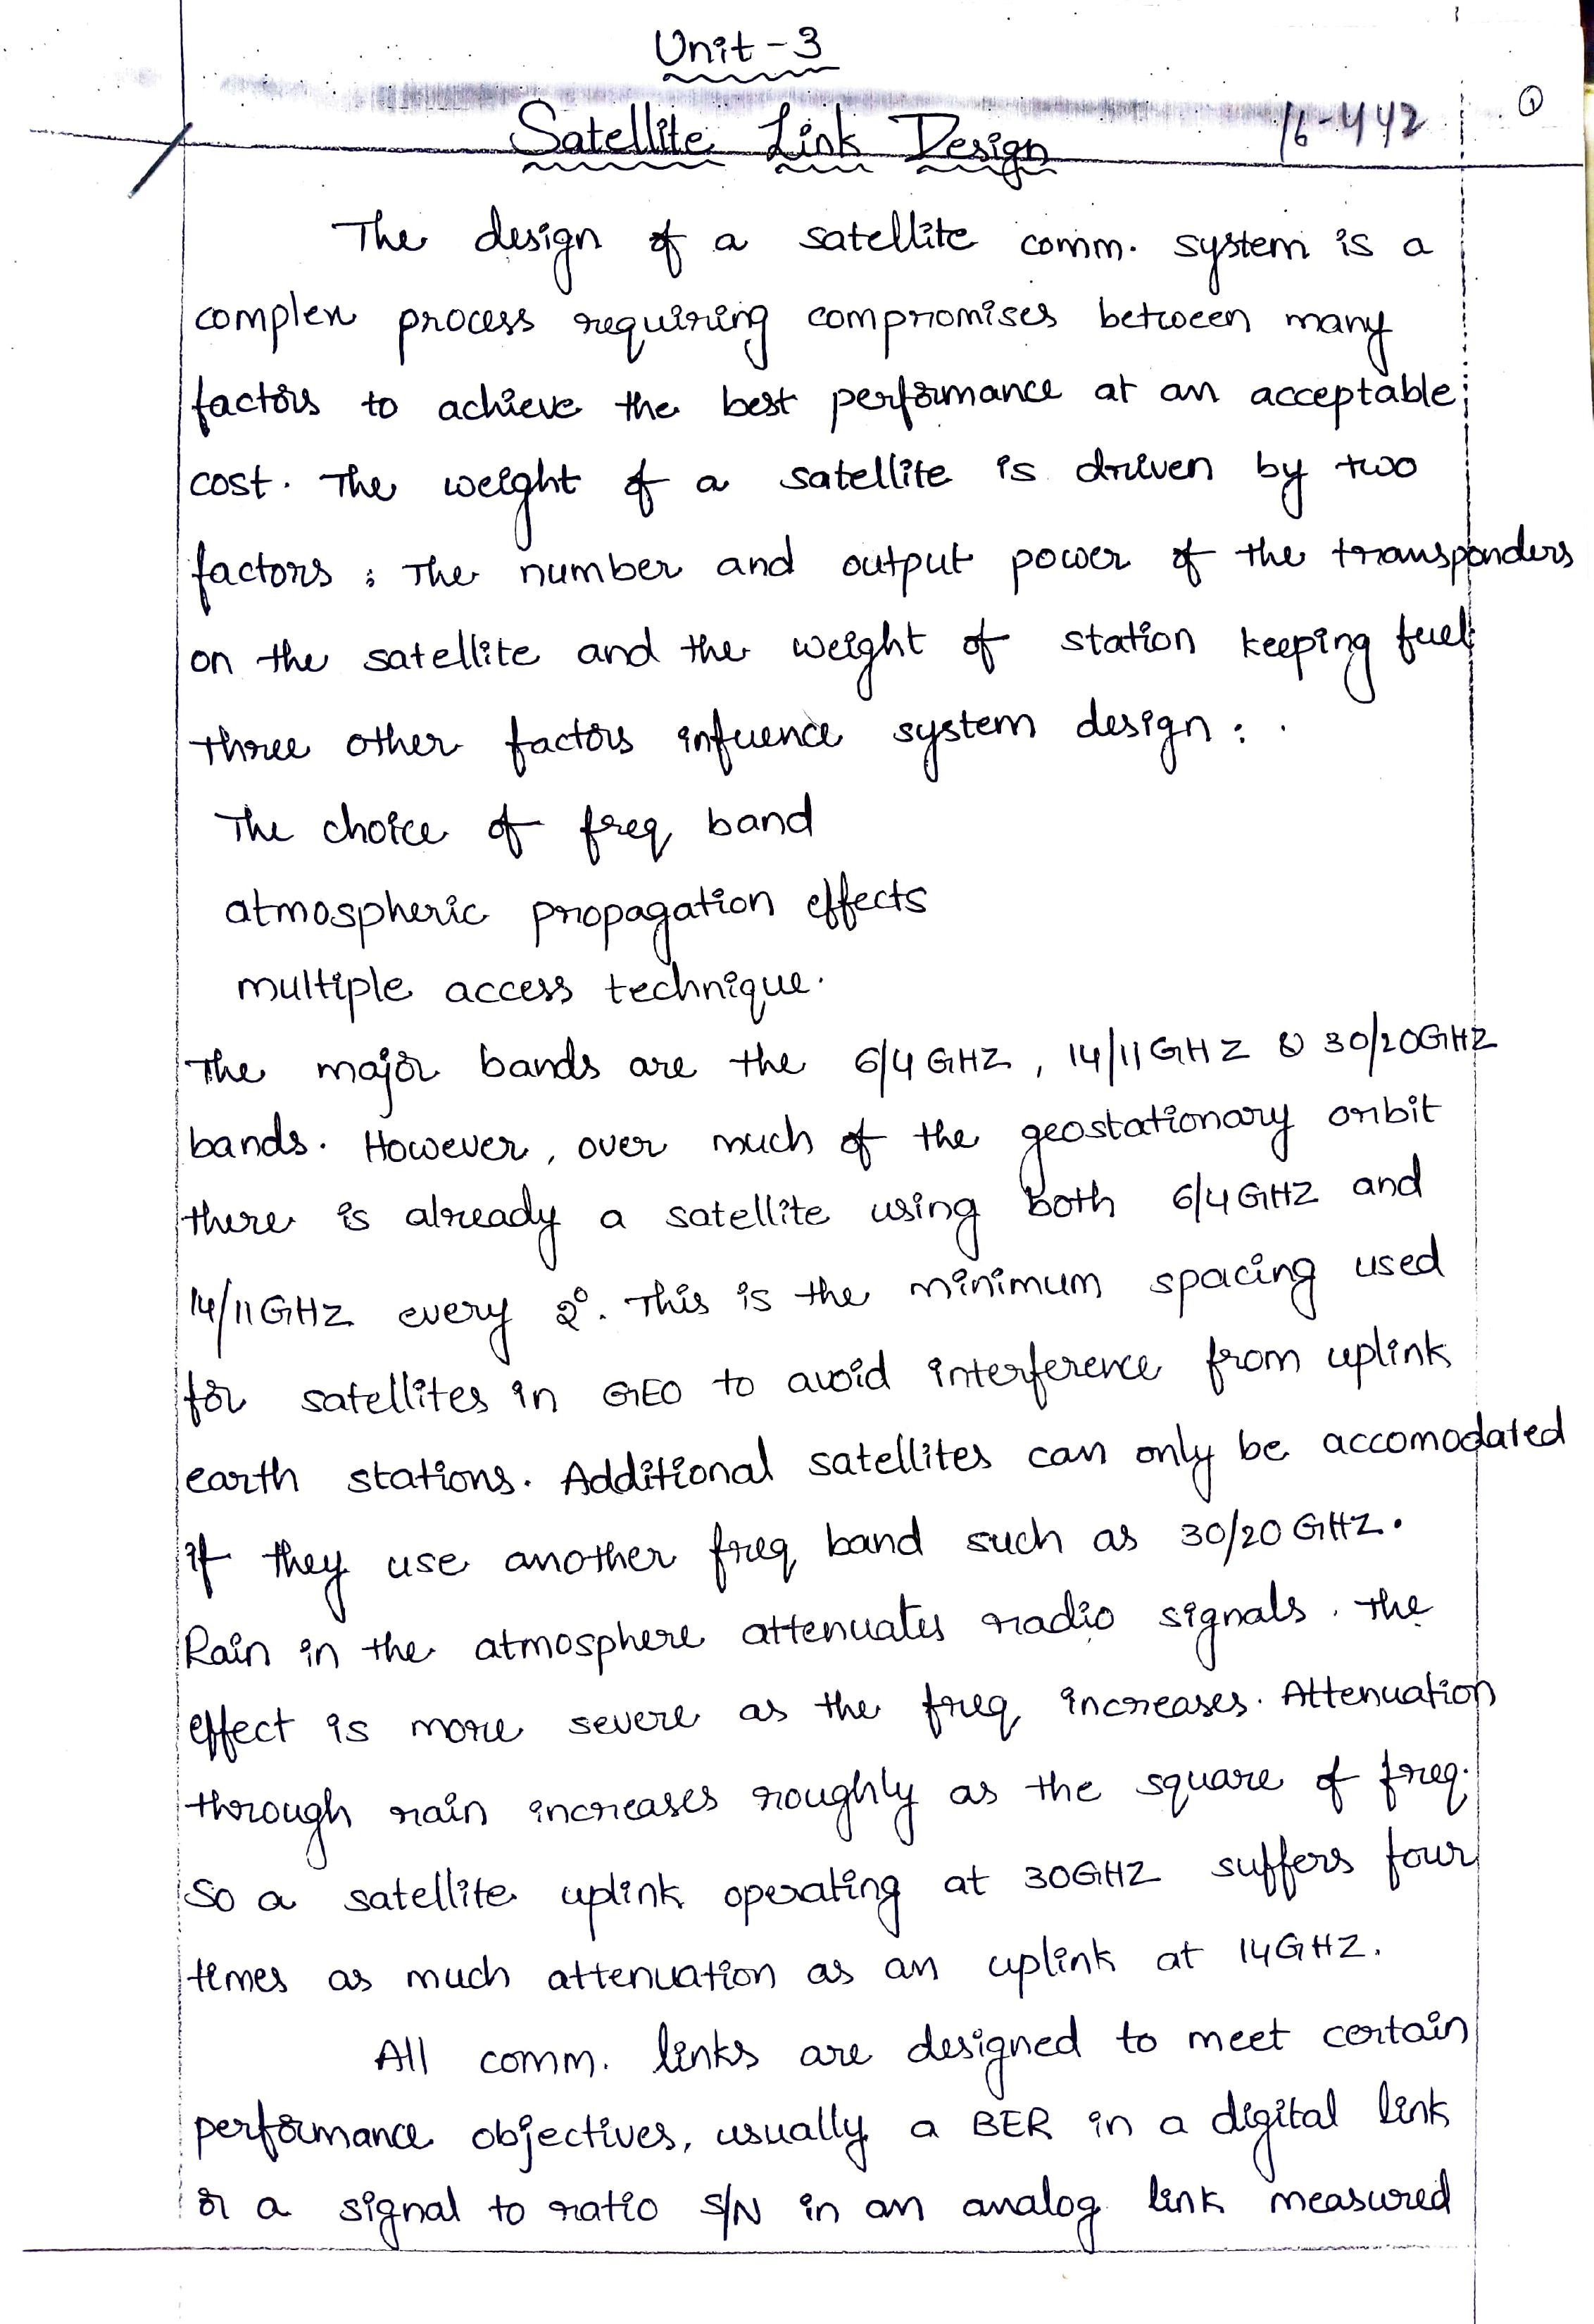 Unit-3
①
Satellite Link Design
16-442
The design of a satellite comm. system is a
complex process requiring compromises between many
factors to achieve the best performance at an acceptable
cost. The weight of a satellite is driven by two
factors; The number and output power of the transponders
on the satellite and the weight of station keeping fuel
three other factors infuence system design:
The choice of freq band
atmospheric propagation effects
multiple access technique.
The major bands are the 6/4 GHZ, 14/11 GHZ & 30/20GHZ
bands. However, over much of the geostationary orbit
there is already a satellite using both 6/4 GHZ and
14/11GHZ every 2°. This is the minimum spacing used
for satellites in GEO to avoid interference from uplink
earth stations. Additional satellites can only be accomodated
if they use another freq band such as 30/20 GHZ.
Rain in the atmosphere attenuates radio signals. The
effect is more severe as the freq increases. Attenuation
through rain increases roughly as the square of freq.
So a satellite uplink operating at 30GHZ suffers four
times as much attenuation as an uplink at 14GHZ.
All comm. links are designed to meet certain
performance objectives, usually a BER in a digital link
or a signal to ratio S/N in an analog link measured